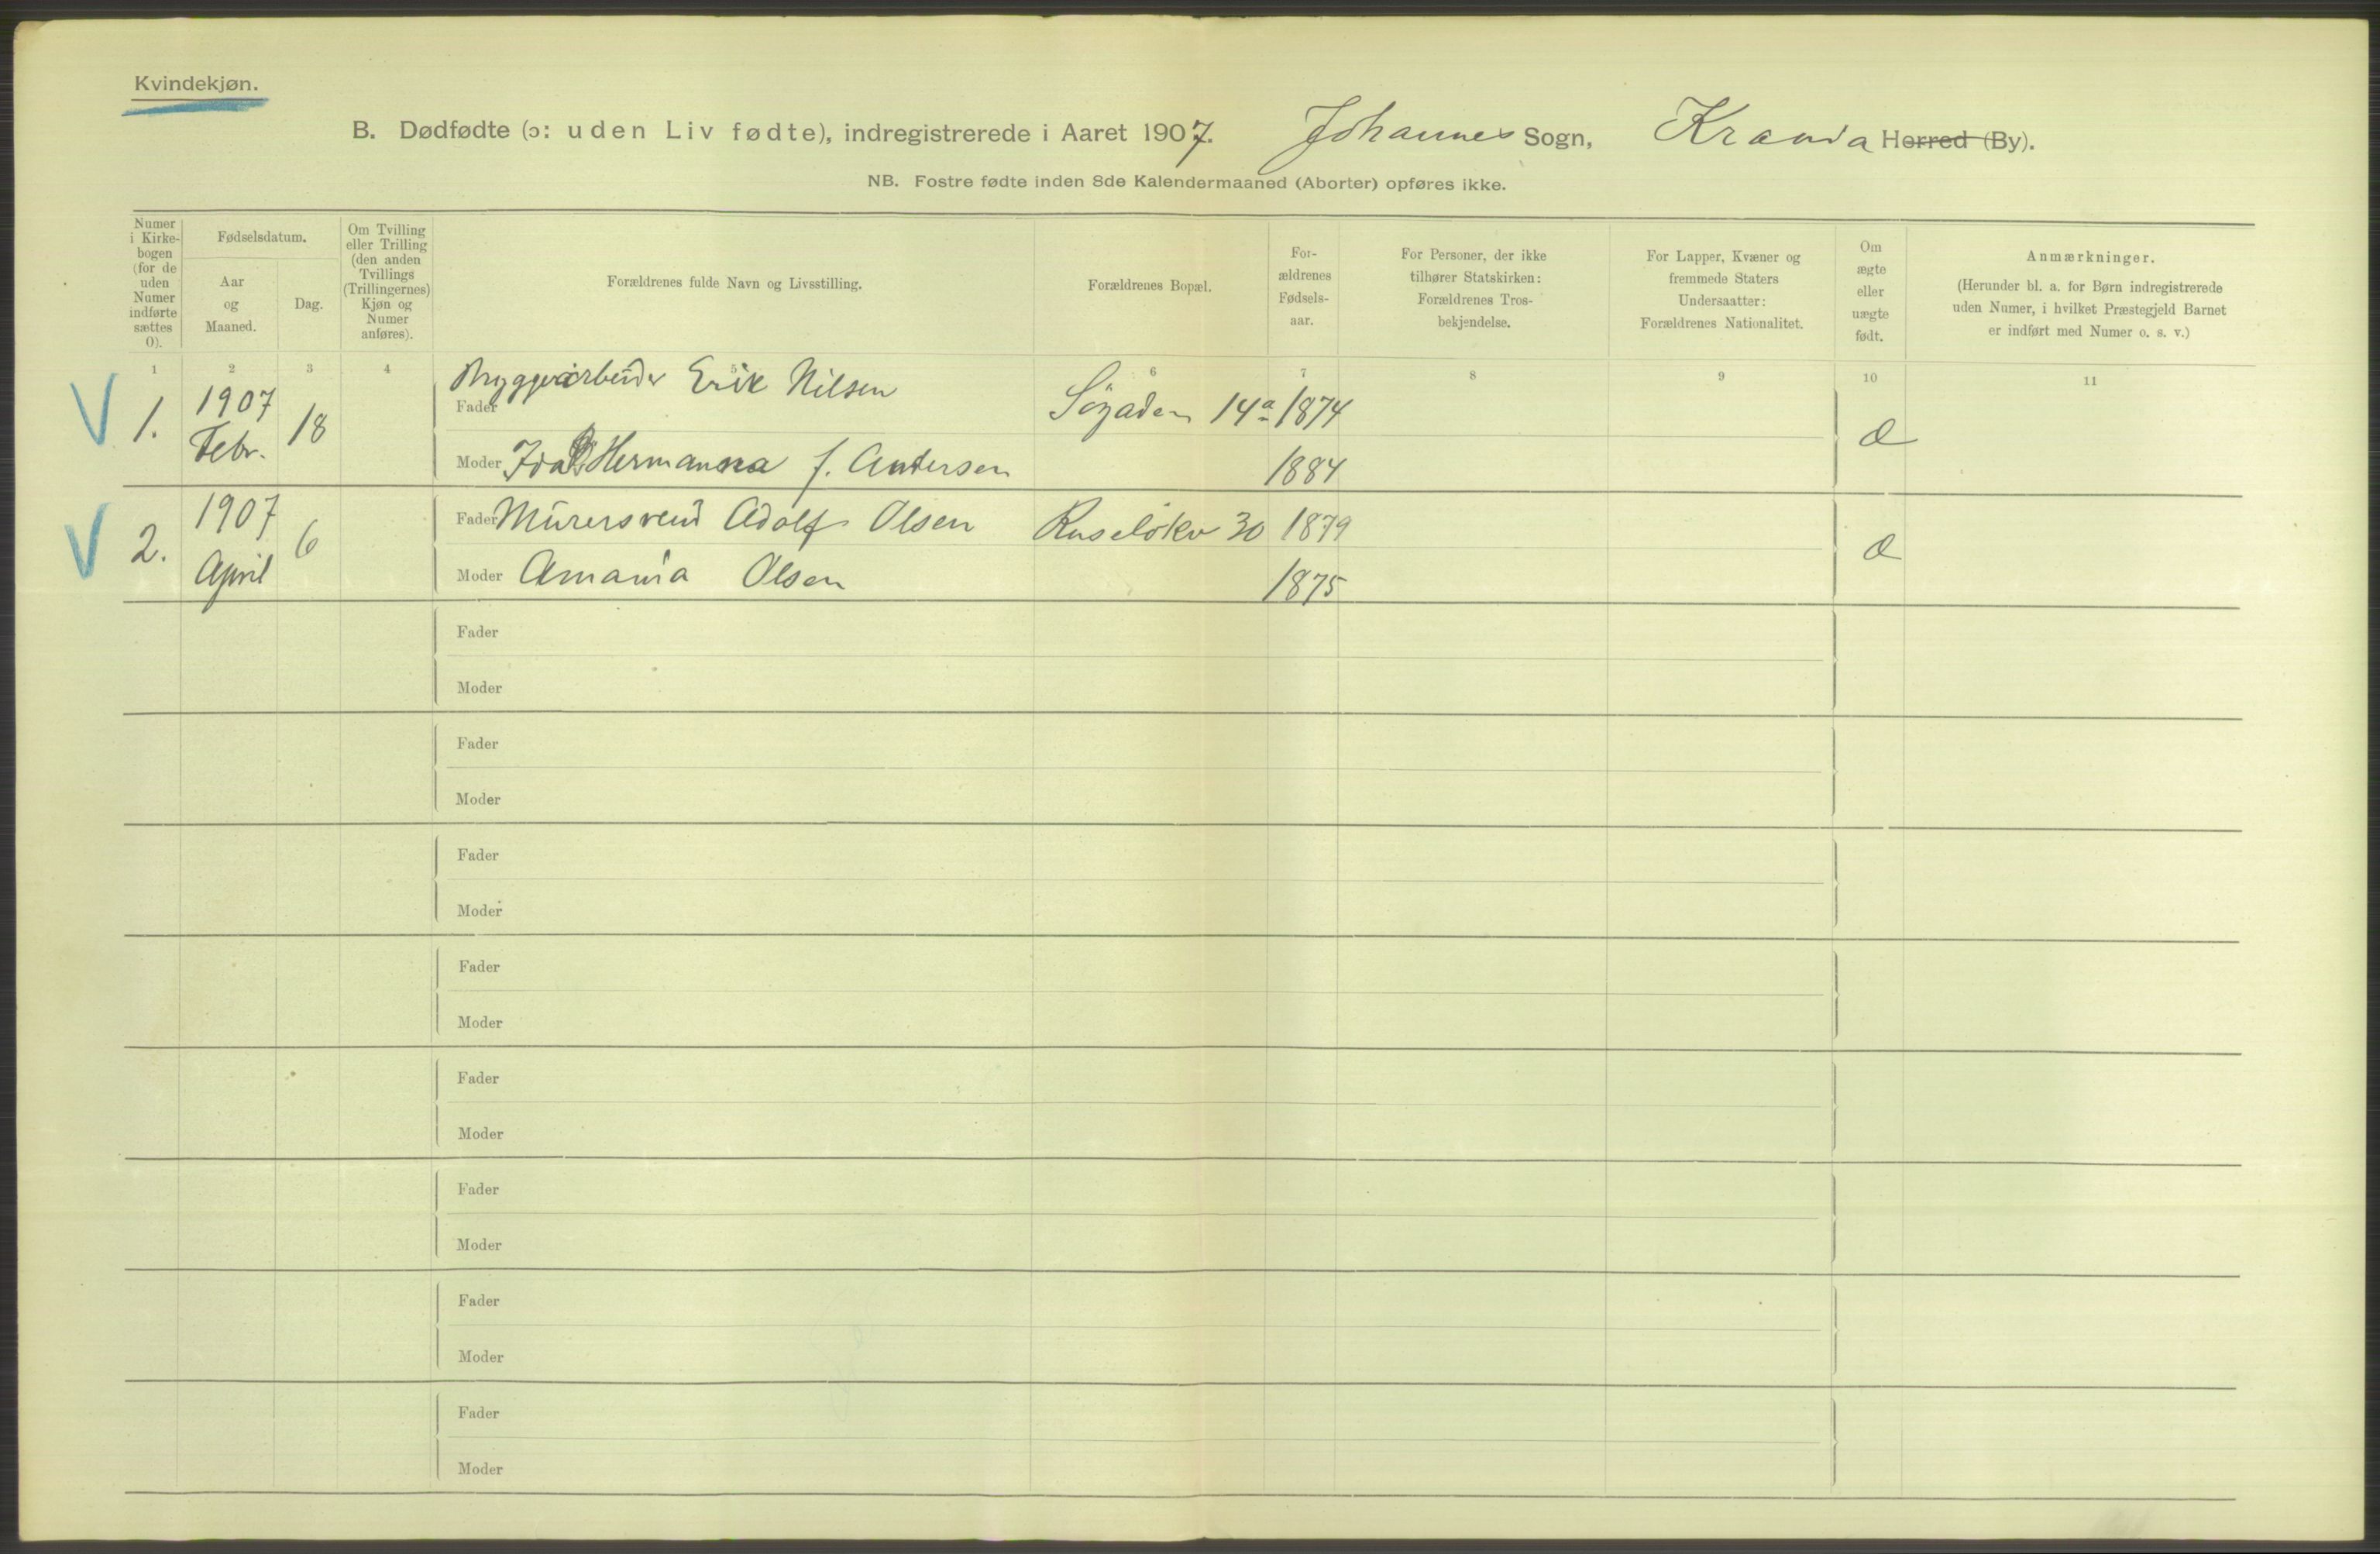 Kvindekjøn.
B. Dødfødte (ɔ: uden Liv fødte), indregistrerede i Aaret 1907. Johannes Sogn, Krania Herred (By).
NB. Fostre fødte inden 8de Kalendermaaned (Aborter) opføres ikke.
Numer i Kirke-bogen (for de uden Numer indførte sættes 0).
Fødselsdatum.
Aar og Maaned.
Dag.
Om Tvilling eller Trilling (den anden Tvillings (Trillingernes) Kjøn og Numer anføres).
Forældrenes fulde Navn og Livsstilling.
Forældrenes Bopæl.
For-ældrenes Fødsels-aar.
For Personer, der ikke tilhører Statskirken: Forældrenes Tros-bekjendelse.
For Lapper, Kvæner og fremmede Staters Undersaatter: Forældrenes Nationalitet.
Om ægte eller uægte født.
Anmærkninger.
(Herunder bl. a. for Børn indregistrerede uden Numer, i hvilket Præstegjeld Barnet er indført med Numer o. s. v.)
1 2 3 4 5 6 7 8 9 10 11
V 1. 1907 Febr. 18
Fader Bryggeriarbeider Erik Nilsen 14a 1874
Moder Ida Hermanna f. Andersen 1884
V 2. 1907 April 6
Fader Murersvend Adolf Olsen Ruseløkv 30 1879
Moder Amania Olsen 1875
Fader
Moder
Fader
Moder
Fader
Moder
Fader
Moder
Fader
Moder
Fader
Moder
Fader
Moder
Fader
Moder